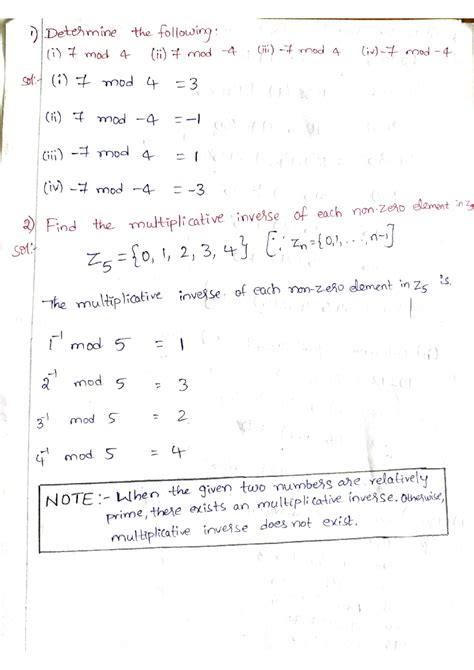 1) Determine the following:
(i) 7 mod 4 (ii) 7 mod -4 (iii) -7 mod 4 (iv) -7 mod -4
Sol:- (i) 7 mod 4 = 3
(ii) 7 mod -4 = -1
(iii) -7 mod 4 = 1
(iv) -7 mod -4 = -3
2) Find the multiplicative inverse of each non-zero element in Z₅
Sol:- Z₅ = {0, 1, 2, 3, 4} [∵ Zₙ = {0,1, ..., n-1}]
The multiplicative inverse of each non-zero element in Z₅ is.
1⁻¹ mod 5 = 1
2⁻¹ mod 5 = 3
3⁻¹ mod 5 = 2
4⁻¹ mod 5 = 4
NOTE:- When the given two numbers are relatively
prime, there exists an multiplicative inverse. Otherwise,
multiplicative inverse does not exist.